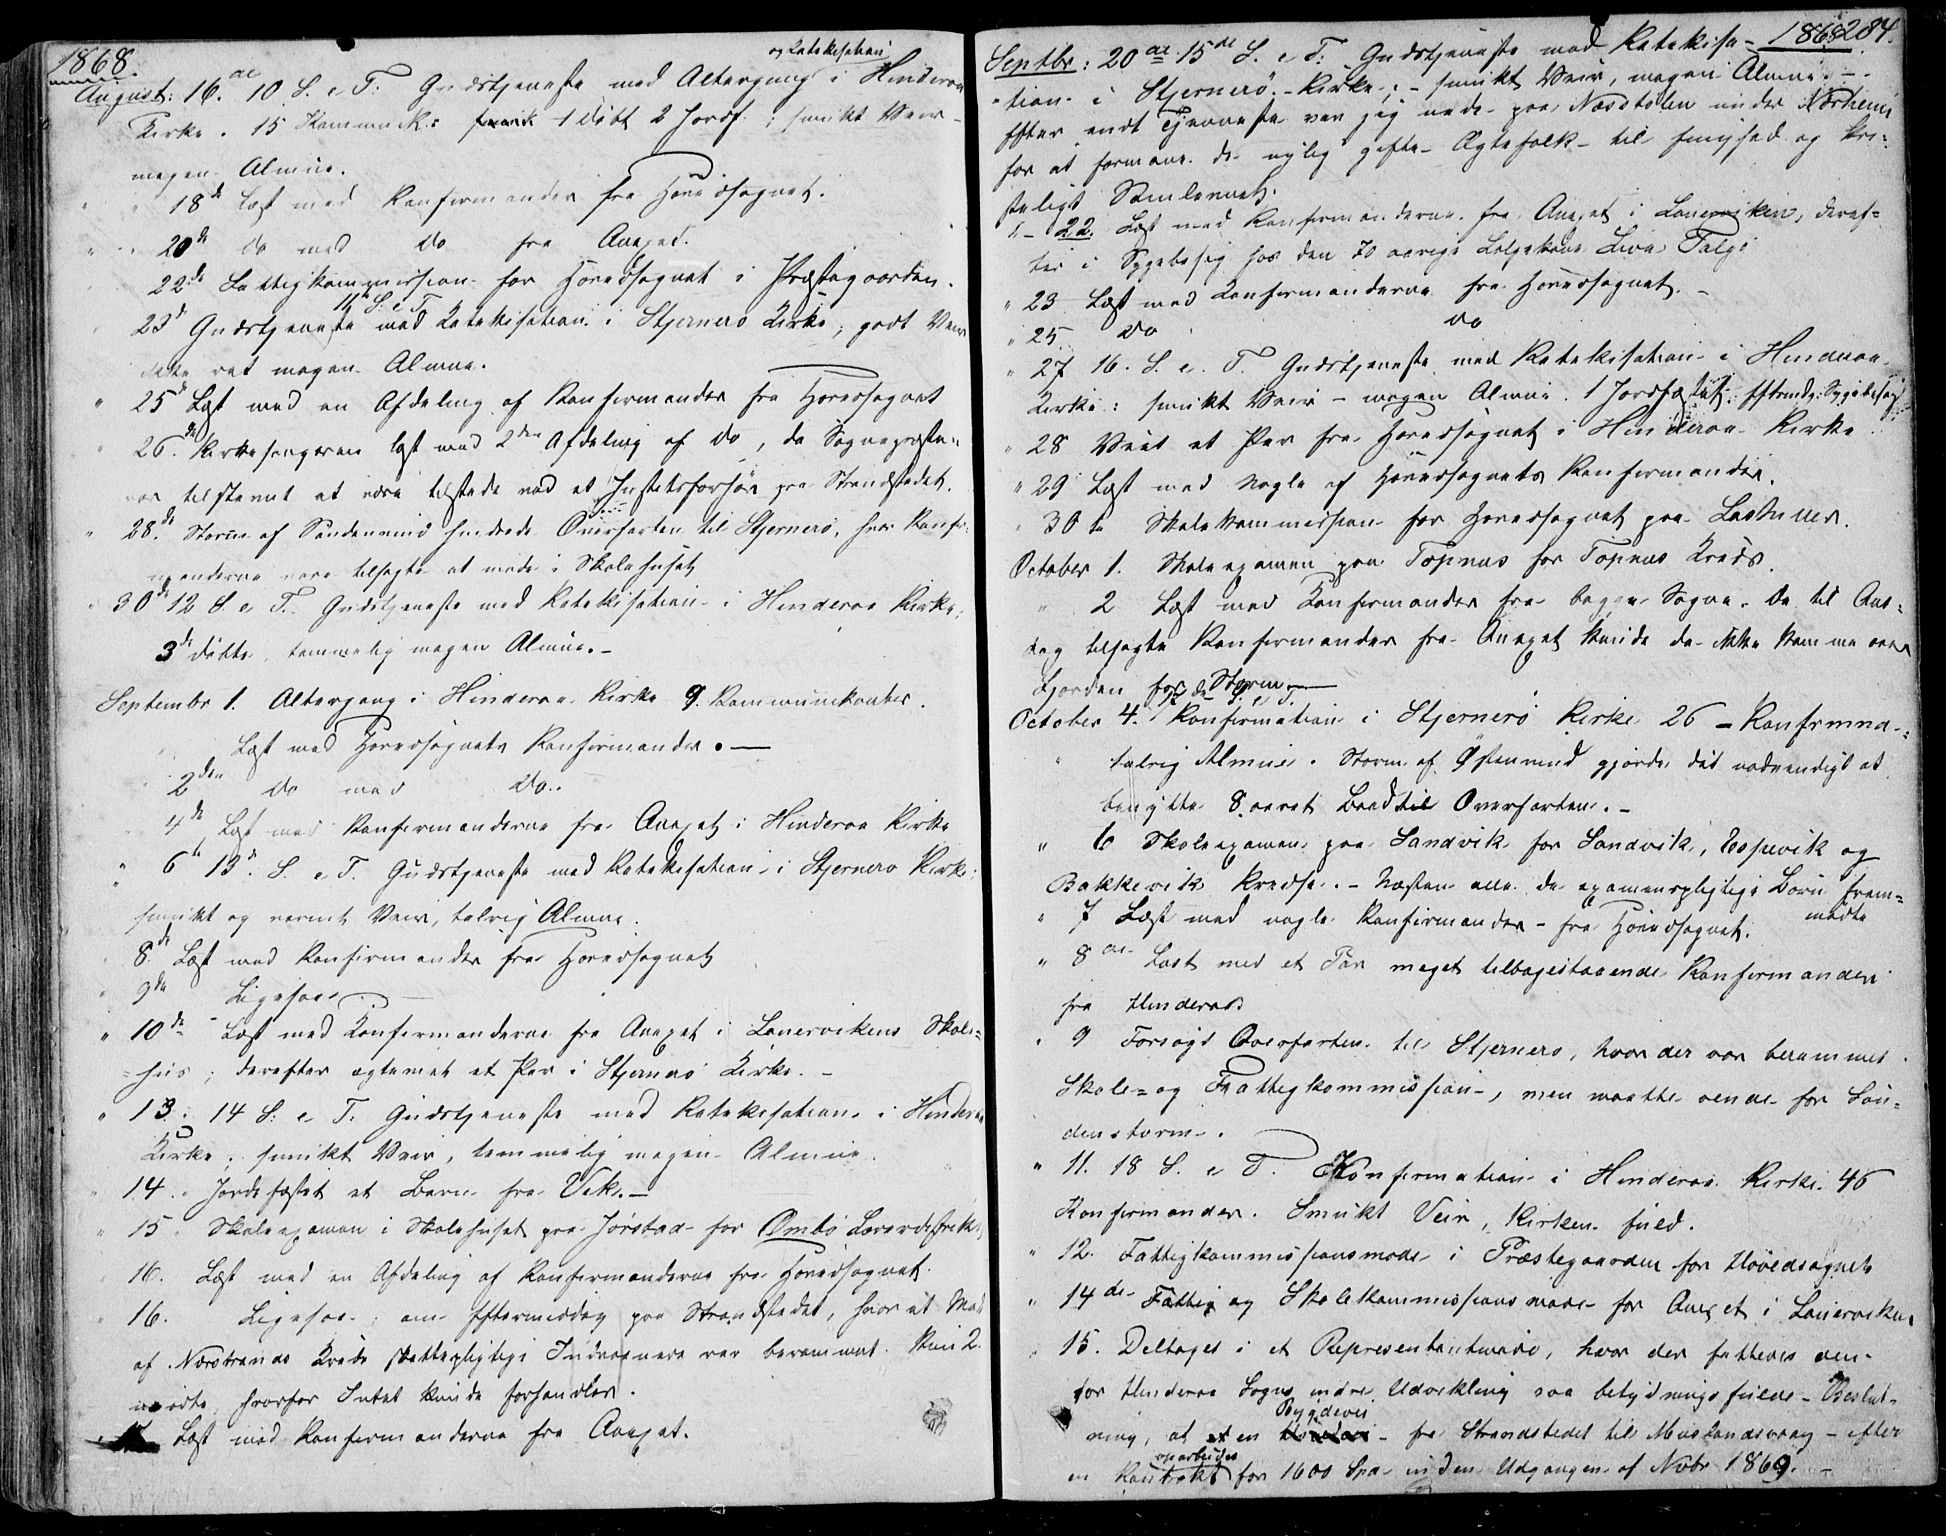 1868.
og Katekisation
August: 16.de 10 S. e T. Gudstjeneste med Altergang i Hinderaa
Kirke. 15 Kommunik: 1 Döbt 2 Jordf. ; smukt Veir –
megen Almue.
" " 18de Læst med Konfirmander fra Hovedsognet.
" " 20de do med do fra Anexet.
22de Fattigkommission for Hovedsognet i Præstegaarden.
11te S. e T.
23d Gudstjeneste med Katekisation i Stjernerö Kirke, godt Veir
ikke ret megen Almue.
" 25de Læst med en Afdeling af Konfirmander fra Hovedsognet
" 26.de Kirkesangeren læst med 2den Afdeling af do, da Sognepræsten
var tilstevnt at være tilstede ved et Justitsforhör paa Strandstedet.
" 28.de Storm af Söndenvind hindrede Overfarten til Stjernerö, hvor Konfir-
manderne vare tilsagte at møde i Skolehuset
" 30de 12 S. e T. Gudstjeneste med Katekisation i Hinderaa Kirke,
3de döbte, temmelig megen Almue. –
Septembr 1. Altergang i Hinderaa Kirke 9. Kommunikanter.
Læst med Hovedsognets Konfirmander. —
2den do med do.
4de Læst med Konfirmanderne fra Anexet i Hinderaa Kirke
" 6te 13de S. e T. Gudstjeneste med Katekisation i Stjernerö Kirke,
smukt og varmt Veir, talrig Almue.
8de Læst med Konfirmander fra Hovedsognet
" 9de Ligesaa. –
" 10de Læst med Konfirmanderne fra Anexet i Lanervikens Skole-
=hus ; derefter ægteviet et Par i Stjernerö Kirke. –
" 13. 14 S. e T. Gudstjeneste med Katekisation i Hinderaa
Kirke ; smukt Veir, temmelig megen Almue.
" 14. Jordfæstet et Barn fra Vik. —
" 15. Skoleexamen i Skolehuset paa Jörstad for Ombö Lærerdistrikt
" 16. Læst med en Afdeling af Konfirmanderne fra Hovedsognet.
" 16. Ligesaa ; om Eftermiddag paa Strandstedet, hvor et Møde
af Nærstrands Kreds skattepligtige Indvaanere var berammet. Kun 2
mødte, hvorfor Intet kunde forhandles.
Læst med Konfirmanderne fra Anexet.
1868 284.
Septbr: 20de 15de S. e T: Gudstjeneste med Katekisa-
=tion i Stjernerö Kirke ; – smukt Veir, megen Almue. –
Efter endt Tjeneste var jeg nede paa Nordtolen under Norheim
for at formane de nylig gifte Ægtefolk til Enighed og kri-
steligt Samlevnet.
" – 22. Læst med Konfirmanderne fra Anexet i Lanerviken, deref-
ter i Sygebesög hos den 70 aarige Lægskone Liva Talge
" 23 Læst med Konfirmanderne fra Hovedsognet. –
" 25 do do
" 27 16. S. e. T. Gudstjeneste med Katekisation i Hinderaa
Kirke: smukt Veir – megen Almue. 1 Jordfæstet. Eftermdg: Sygebesög
" 28 Viet et Par fra Hovedsognet i Hinderaa Kirke
" 29 Læst med Nogle af Hovedsognets Konfirmander.
" 30te Skolekommission for Hovedsognet paa
October 1. Skoleexamen paa Topnæs for Topnæs Kreds.
" 2 Læst med Konfirmander fra begge Sogne. De til Ons-
dag tilsagte Konfirmander fra Anexet kunde da ikke komme over
Fjorden for Storm. —
17de S. e. T.
October 4. Konfirmation i Stjernerö Kirke 26 – Konfirmnd. =
talrig Almue. Storm af Östenvind gjorde det nødvendigt at
benytte 8 aaret Baad til Overfarten. –
" 6 Skoleexamen paa Sandvik for Sandvik, Espevik og
Bakkevik Kredse. – Næsten alle de examenspligtige Börn frem-
mödte
" 7 Læst med nogle Konfirmander – fra Hovedsognet.
" 8de Læst med et Par meget tilbagestaaende Konfirmander
fra Hinderaa
" 9 Forsögt Overfarten til Stjernerö, hvor der var berammet
Skole= og Fattigkommission –, men maatte vende for Sön-
denstorm –.
" 11. 18 S. e T. Konfirmation i Hinderaa Kirke. 46
Konfirmander. Smukt Veir, Kirken fuld.
" 12. Fattigkommissionsmöde i Præstegaarden for Hovedsognet
" 14de Fattig og Skolekommissionsmöde for Anexet i Lanerviken
" 15. Deltaget i et Representantmöde, hvor der fattedes den
for Hinderaa Sogns indre Udvikling saa betydningsfulde – Beslut-
ning, at en Bygdevei – fra Strandstedet til Muslandsvaag – efter
en Kontrakt oparbeides for 1600 Spd. inden Udgangen af Novbr 1869. –